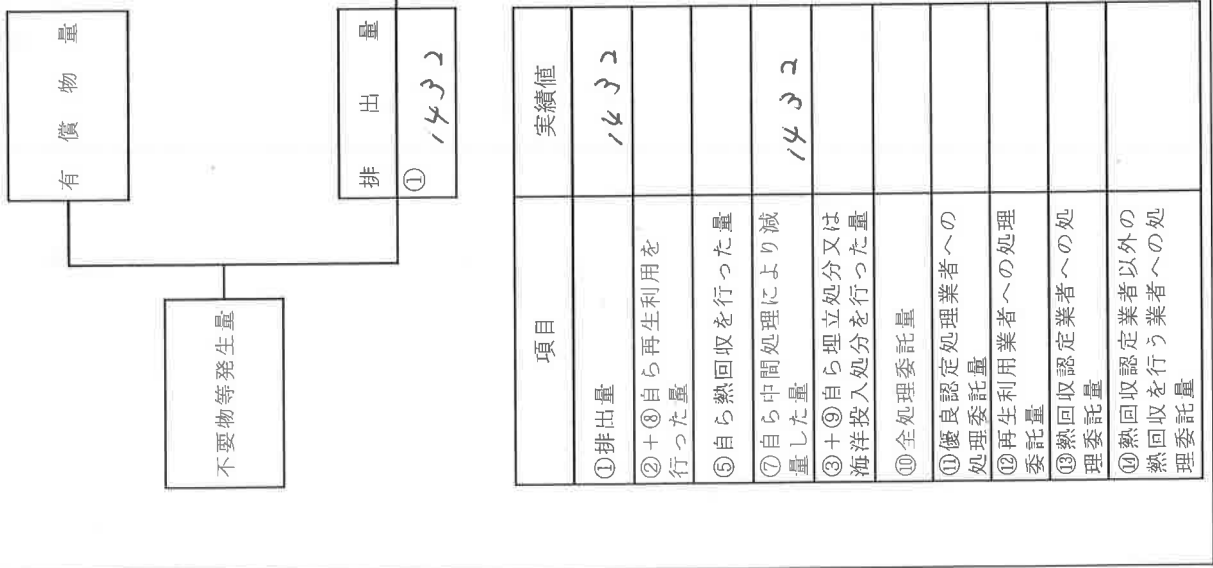 有償物量
不要物等発生量
排出量
①
1432
項目
実績値
①排出量
1432
②+⑧自ら再生利用を
行った量
⑤自ら熱回収を行った量
⑦自ら中間処理により減
量した量
1432
③+⑨自ら埋立処分又は
海洋投入処分を行った量
⑩全処理委託量
⑪優良認定処理業者への
処理委託量
⑫再生利用業者への処理
委託量
⑬熱回収認定業者への処
理委託量
⑭熱回収認定業者以外の
熱回収を行う業者への処
理委託量